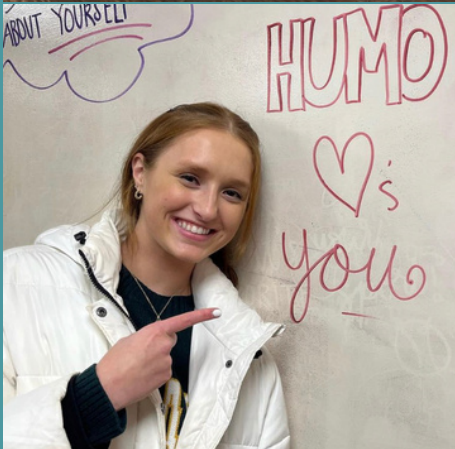 ABOUT YOURSELF
HUMO
♥'s
you